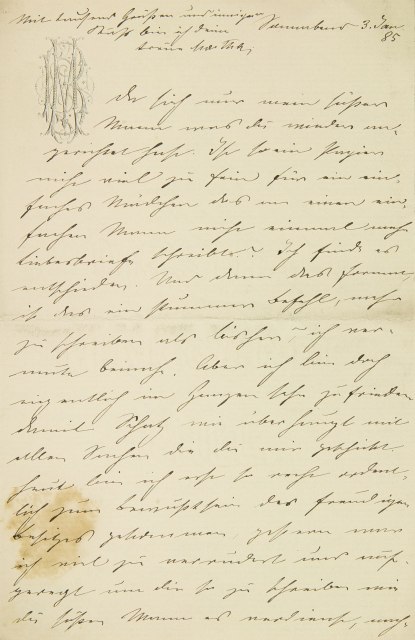 Mit tausend Grüßen und innigem
Kuß bin ich Deine
treue Martha.
3. Jan
85
MB
sich nur mein süßer
Mann was Du wieder an-
gerichtet hast. Ist so ein Papier
nicht viel zu fein für ein ein-
faches Mädchen das an einen ein-
fachen Mann nicht einmal mehr
Liebesbriefe schreibt? Ich finde es
entschieden. Und dann das Format,
ist das ein stummer Befehl, mehr
zu schreiben als bisher, ich ver-
mute beinah. Aber ich bin doch
eigentlich im Ganzen sehr zufrieden
damit Schatz wie überhaupt mit
allen Sachen die Du mir geschickt
heut bin ich erst so recht ordent-
lich zum Bewußtsein des freudigen
Besitzes gekommen, gestern war
ich viel zu verwundert und auf-
geregt um Dir so zu schreiben wie
Du süßer Mann es verdienst, auch